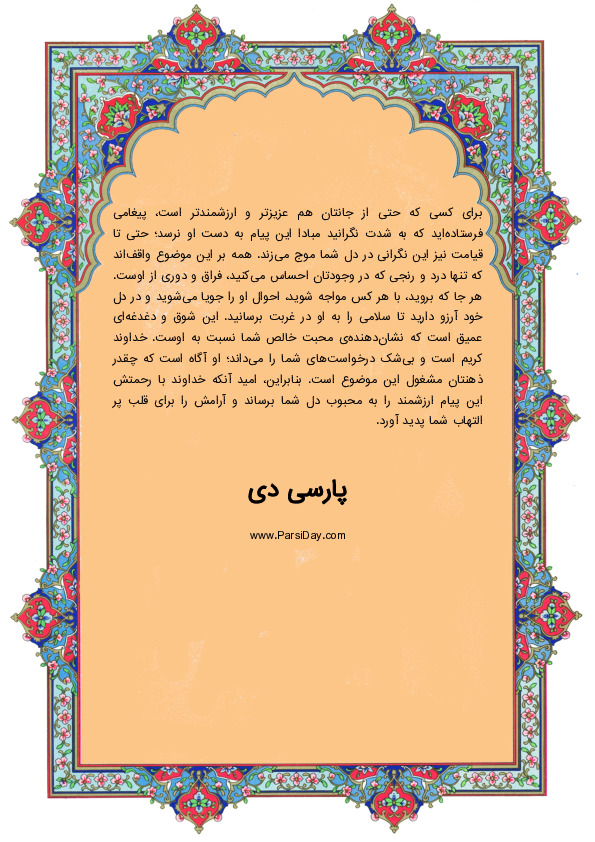 برای کسی که حتی از جانتان هم عزیزتر و ارزشمندتر است، پیغامی
فرستاده‌اید که به شدت نگرانید مبادا این پیام به دست او نرسد؛ حتی تا
قیامت نیز این نگرانی در دل شما موج می‌زند. همه بر این موضوع واقف‌اند
که تنها درد و رنجی که در وجودتان احساس می‌کنید، فراق و دوری از اوست.
هر جا که بروید، با هر کس مواجه شوید، احوال او را جویا می‌شوید و در دل
خود آرزو دارید تا سلامی را به او در غربت برسانید. این شوق و دغدغه‌ای
عمیق است که نشان‌دهنده‌ی محبت خالص شما نسبت به اوست. خداوند
کریم است و بی‌شک درخواست‌های شما را می‌داند؛ او آگاه است که چقدر
ذهنتان مشغول این موضوع است. بنابراین، امید آنکه خداوند با رحمتش
این پیام ارزشمند را به محبوب دل شما برساند و آرامش را برای قلب پر
التهاب شما پدید آورد.
پارسی دی
www.ParsiDay.com